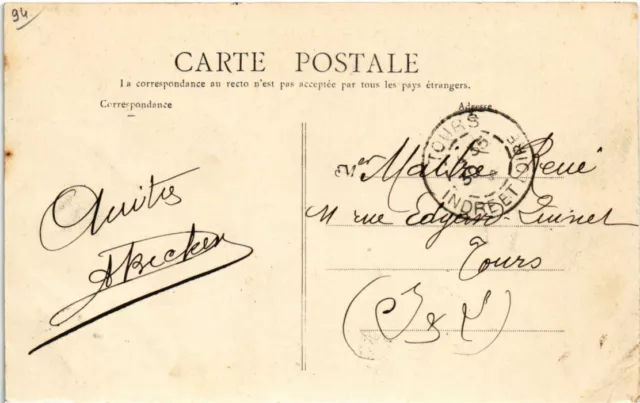 94
CARTE POSTALE
La correspondance au recto n'est pas acceptée par tous les pays étrangers.
Correspondance
Adresse
TOURS
INDRE ET LOIRE
Mr René
11 rue Edgard Quinet
Tours
(I & L)
Amitiés